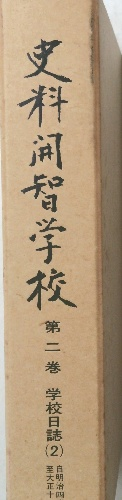 史料開智学校
第二巻 学校日誌(2)
自明治四
至大正十